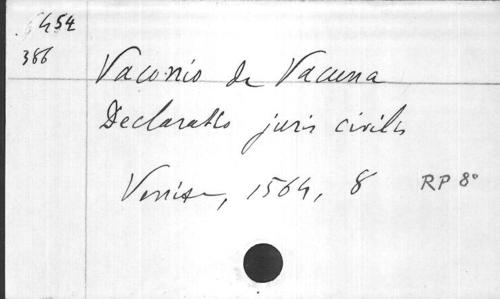 5454
386
Vaconio de Vacuna
Declaratio juris civilis
Venise, 1564, 8 RP 8°